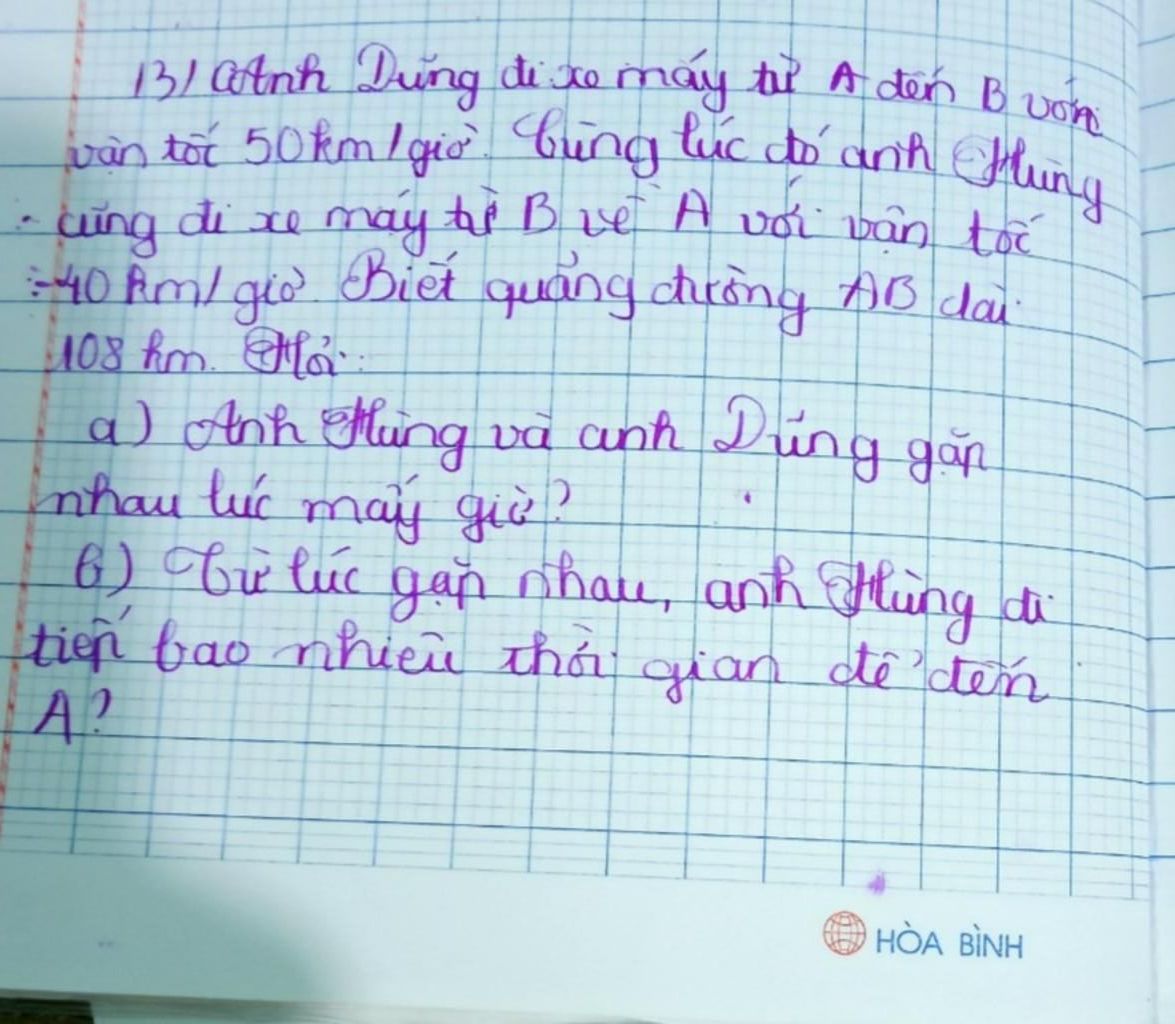 13) Anh Dũng đi xe máy từ A đến B với
vận tốc 50km/giờ. Cùng lúc đó anh Hùng
cũng đi xe máy từ B về A với vận tốc
40km/giờ. Biết quảng đường AB dài
108 km. Hỏi:
a) Anh Hùng và anh Dũng gặp
nhau lúc mấy giờ?
b) Từ lúc gặp nhau, anh Hùng đi
tiếp bao nhiêu thời gian để đến
A?
HÒA BÌNH